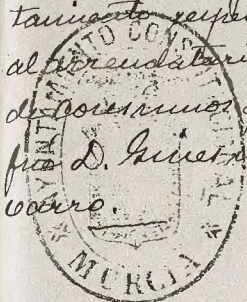 tamiento respe
al arrendatari
de consumos
que D. Gines
AYUNTAMIENTO CONSTITUCIONAL
MURCIA